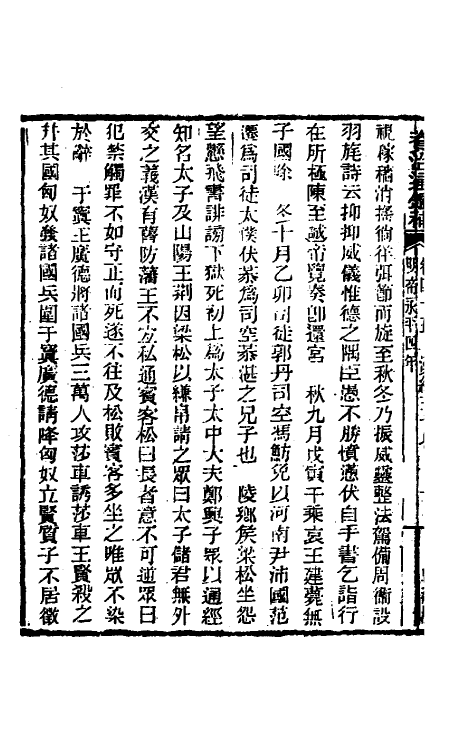 視稼穡消搖徜徉弭節而旋至秋冬乃振威靈整法駕備周衞設
羽旄詩云抑抑威儀惟德之隅臣愚不勝憤懣伏自手書乞詣行
在所極陳至誠帝覽奏卽還宮　秋九月戊寅千乘哀王建薨無
子國除　冬十月乙卯司徒郭丹司空馮魴免以河南尹沛國范
遷爲司徒太僕伏恭爲司空恭湛之兄子也　陵鄉侯梁松坐怨
望懸飛書誹謗下獄死初上爲太子太中大夫鄭興子衆以通經
知名太子及山陽王荆因梁松以縑帛請之衆曰太子儲君無外
交之義漢有舊防藩王不宜私通賓客松曰長者意不可逆衆曰
犯禁觸罪不如守正而死遂不往及松敗賓客多坐之唯衆不染
於辭　于窴王廣德將諸國兵三萬人攻莎車誘莎車王賢殺之
幷其國匈奴發諸國兵圍于窴廣德請降匈奴立賢質子不居徵